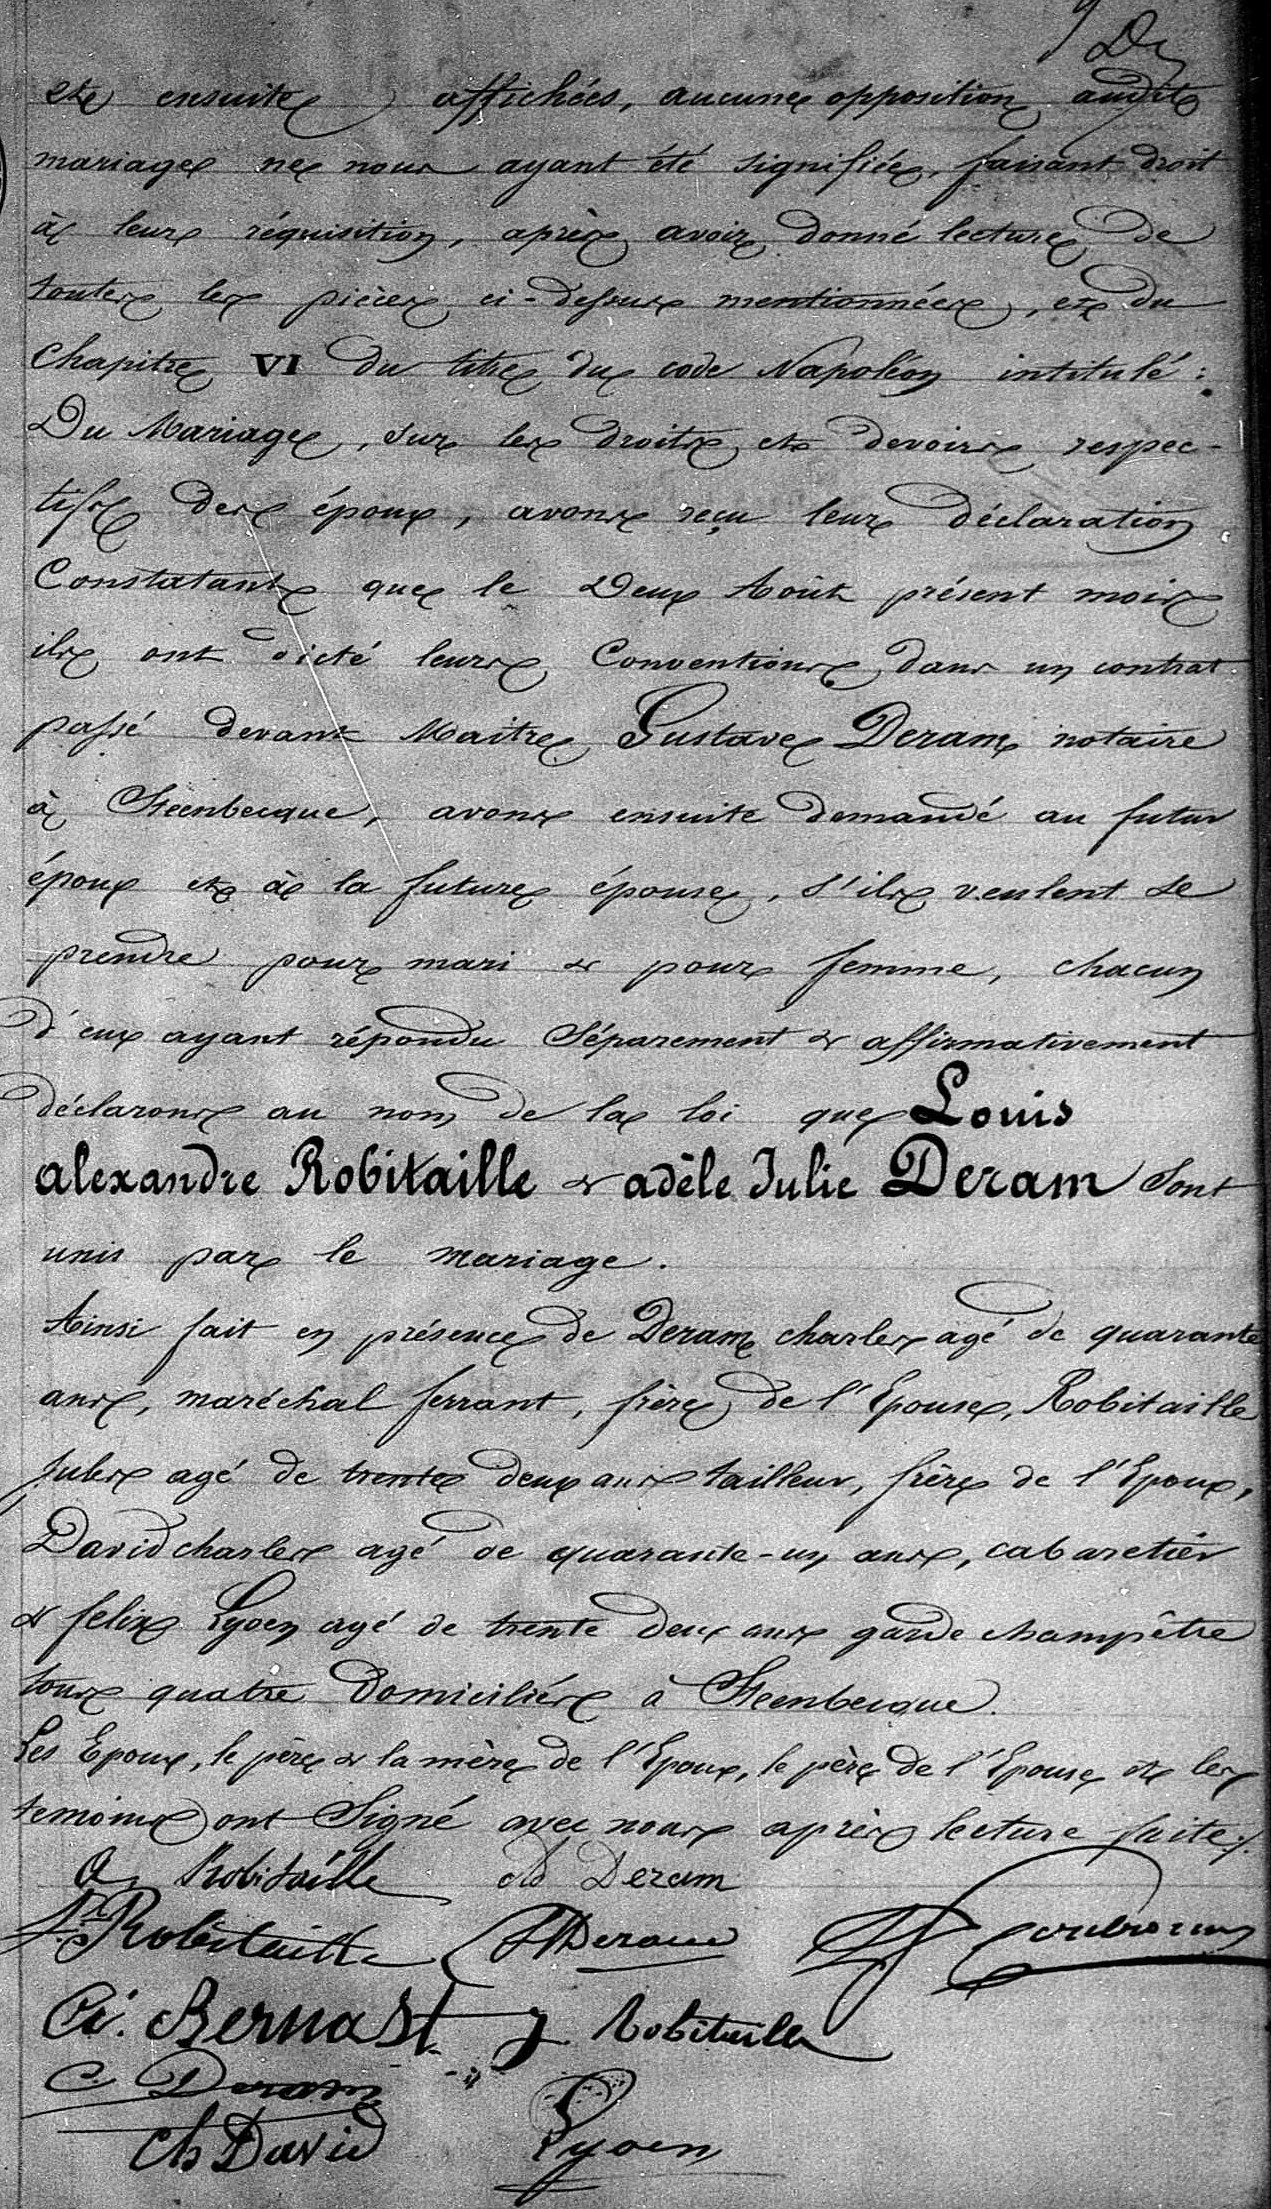 De
et ensuite affichées, aucune opposition audit
mariage ne nous ayant été signifiée, faisant droit
à leur réquisition, après avoir donné lecture de
toutes les pièces ci-dessus mentionnées, et du
Chapitre VI du titre du code Napoléon intitulé :
Du Mariage, sur les droits et devoirs respec-
tifs des époux, avons reçu leur déclaration
Constatant que le Deux Août présent mois
ils ont dicté leurs Conventions dans un contrat
passé devant Maitre Gustave Deram notaire
à Steenbecque, avons ensuite demandé au futur
époux et à la future épouse, s'ils veulent se
prendre pour mari & pour femme, chacun
d'eux ayant répondu Séparement & affirmativement
déclarons au nom de la loi que Louis
alexandre Robitaille & adèle Julie Deram Sont
unis par le mariage.
Ainsi fait en présence de Deram charles agé de quarante
ans, maréchal ferrant, frère de l'Epouse, Robitaille
Jules agé de trente deux ans tailleur, frère de l'Epoux,
David charles agé de quarante-un ans, cabaretier
& felix Lyoen agé de trente deux ans garde champêtre
tous quatre Domiciliés à Steenbecque.
Les Epoux, le père & la mère de l'Epoux, le père de l'Epouse et les
temoins ont Signé avec nous après lecture faite ./.
a Robitaille ad Deram
Robitaille Deram
Bernast J Robitaille
C. Deram
Ch David Lyoen